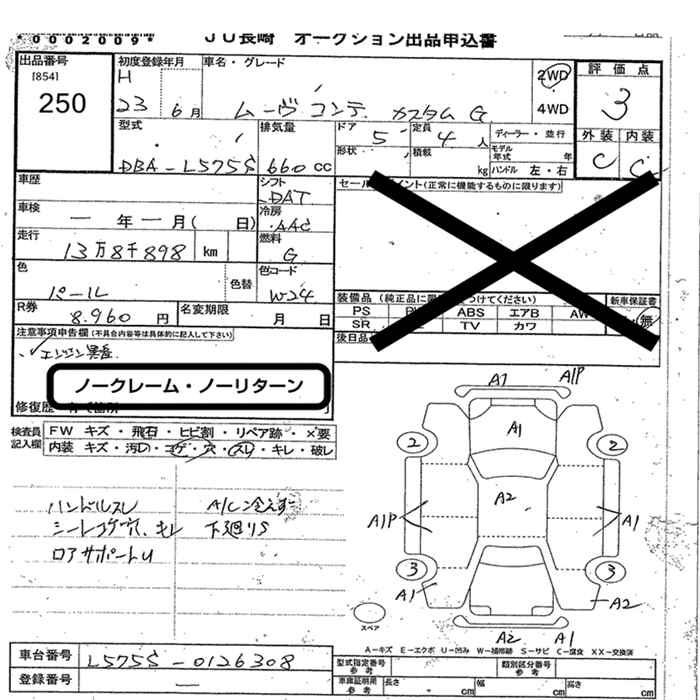 *0002009* ＪＵ長崎 オークション出品申込書
出品番号 初度登録年月 車名・グレード 評価点
[854] H 2WD
250 23 6月 ムーヴ コンテ カスタム G 4WD 3
型式 排気量 ドア 5 定員 4人 ディーラー・並行 外装 内装
形状 積載 kg モデル年式 年
DBA-L575S 660cc ハンドル 左・右 C C
車歴 シフト DAT セールスポイント(正常に機能するものに限ります)
車検 ー年ー月( 日) 冷房 AAC
走行 13万8千898 km 燃料 G
色 パール 色替 色コード W24
R券 8.960円 名変期限 月 日
装備品 新車保証書
PS ABS エアB AW 無
SR TV カワ
注意事項申告欄(不具合内容等は具体的に記入して下さい) 後日品
エンジン異音
ノークレーム・ノーリターン
修復歴
検査員記入欄 FW キズ・飛石・ヒビ割・リペア跡・×要
内装 キズ・汚レ・コゲ・穴・スレ・キレ・破レ
ハンドルスレ A/C冷えず
シートコゲ穴、キレ 下廻りS
ロアサポートU
A1 A1P
A1
2 2
A2
A1P A1
3 3
A1 A2
スペア
A2 A1
A－キズ E－エクボ U－凹み W－補修跡 S－サビ C－腐食 XX－交換済
車台番号 L575S-0126308 型式指定番号 参考 類別区分番号 参考
登録番号 車庫証明用 参考 長さ cm 幅 cm 高さ cm